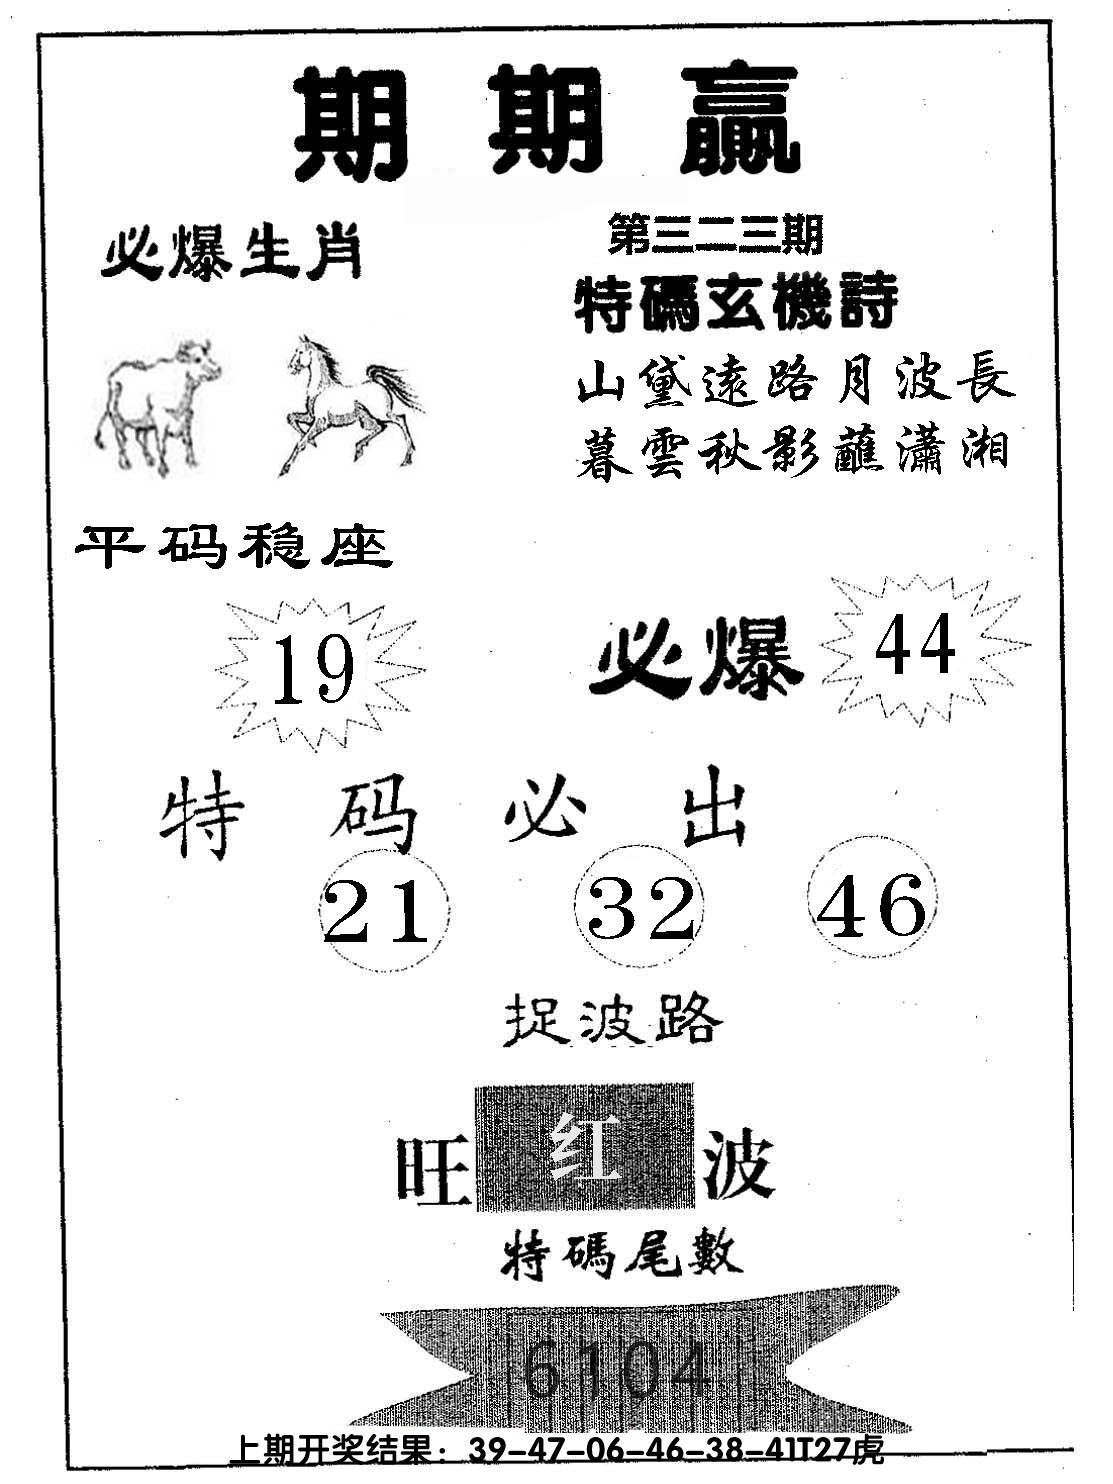 期期贏
必爆生肖
第三二三期
特碼玄機詩
山黛遠路月波長
暮雲秋影蘸瀟湘
平码稳座
19
必爆
44
特码必出
21 32 46
捉波路
旺红波
特碼尾數
6104
上期开奖结果：39-47-06-46-38-41T27虎